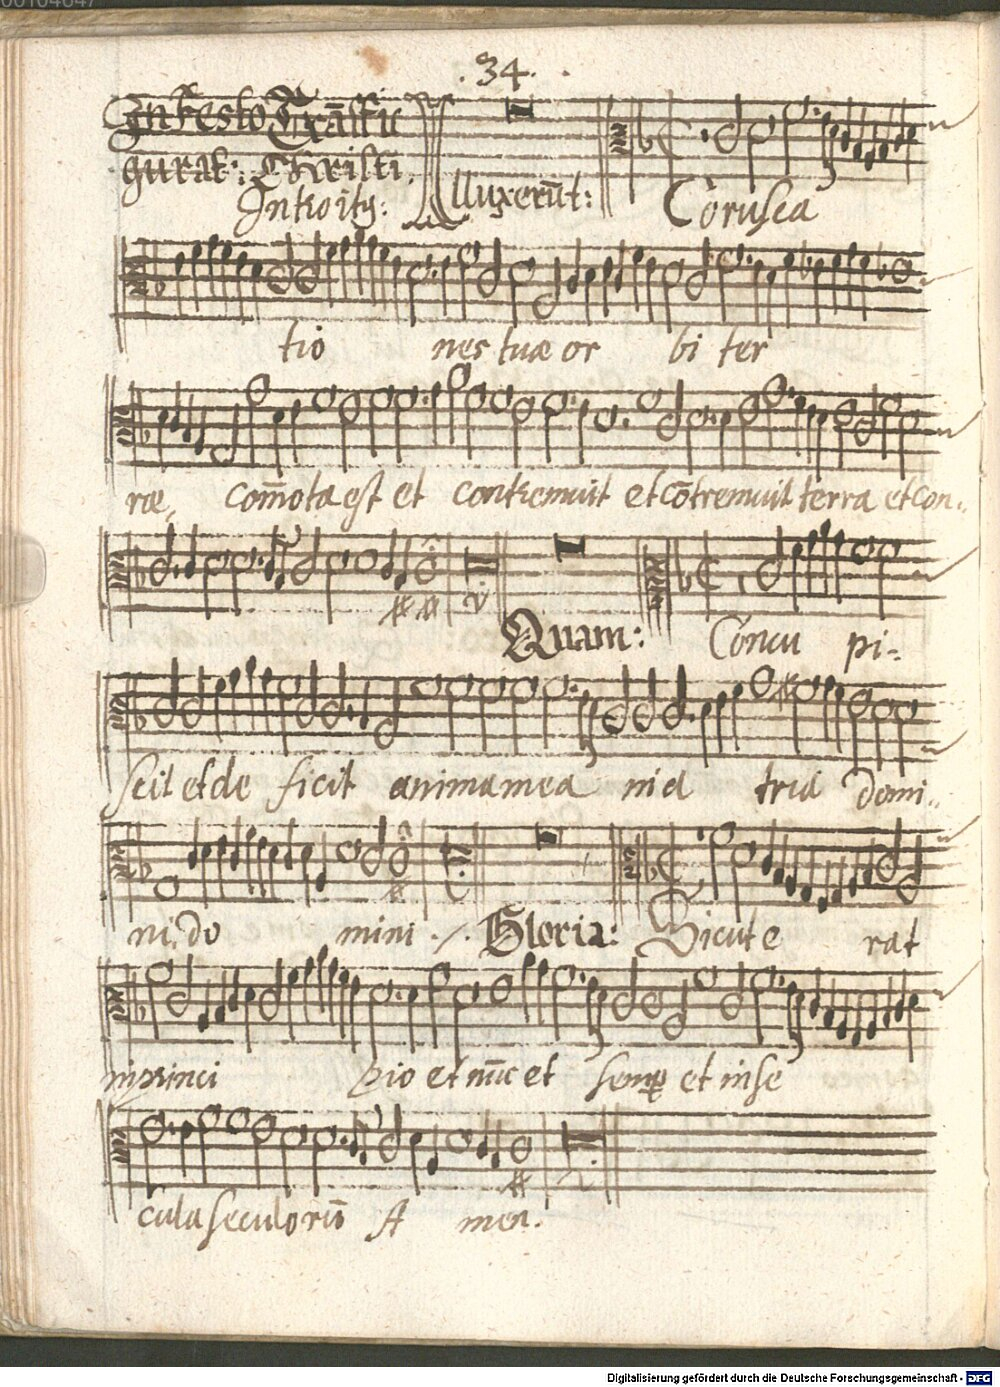 00104647
.34.
In Festo Trāsfi
gurat: Christi.
Introitq: Illuxerūt: Corusca
tio nes tuæ or bi ter
ræ, com̄ota est et contremuit et cōtremuit terra et con-
Quam: Concu pi-
scit et de ficit anima mea in a tria domi-
ni. do mini. Gloria: Sicut e rat
in princi pio et nūc et semp et in se
cula seculorū A men.
Digitalisierung gefördert durch die Deutsche Forschungsgemeinschaft - DFG